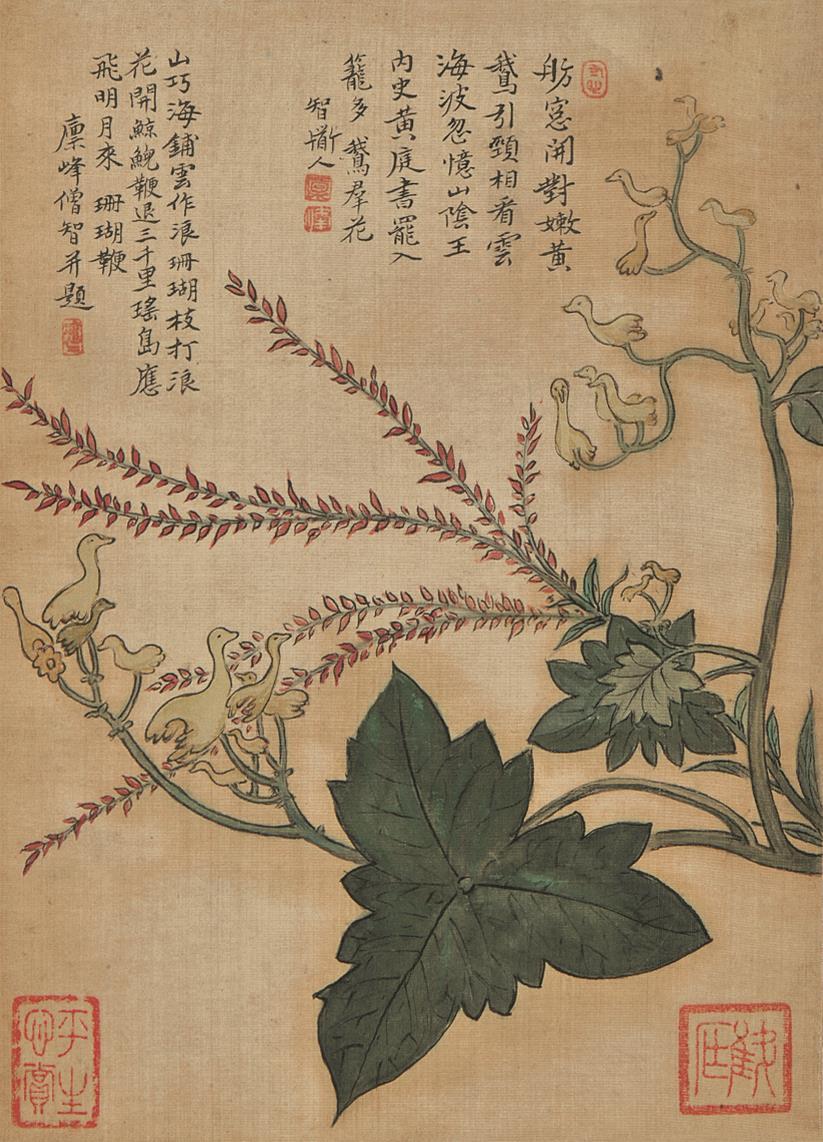 舫窓開對嫩黄
鵞引頸相看雲
海波忽憶山陰王
内史黄庭書罷入
籠多 鵞羣花
智 人
山巧海鋪雲作浪珊瑚枝打浪
花開鯨鯢鞭退三千里瑤島應
飛明月來 珊瑚鞭
廩峰僧智并題
平生
心賞